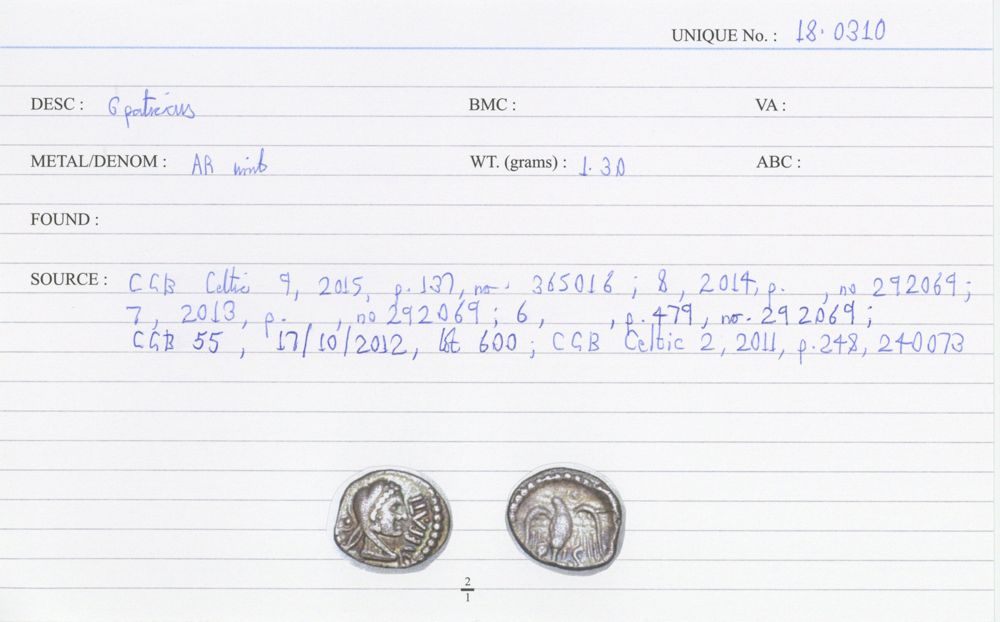 UNIQUE No. : 18.0310
DESC : Epaticcus BMC : VA :
METAL/DENOM : AR unit WT. (grams) : 1.30 ABC :
FOUND :
SOURCE : CGB Celtic 9, 2015, p.137, no. 365016 ; 8, 2014, p. , no 292069 ;
7, 2013, p. , no 292069 ; 6, , p.479, no. 292069 ;
CGB 55, 17/10/2012, lot 600 ; CGB Celtic 2, 2011, p.248, 240073
2
1